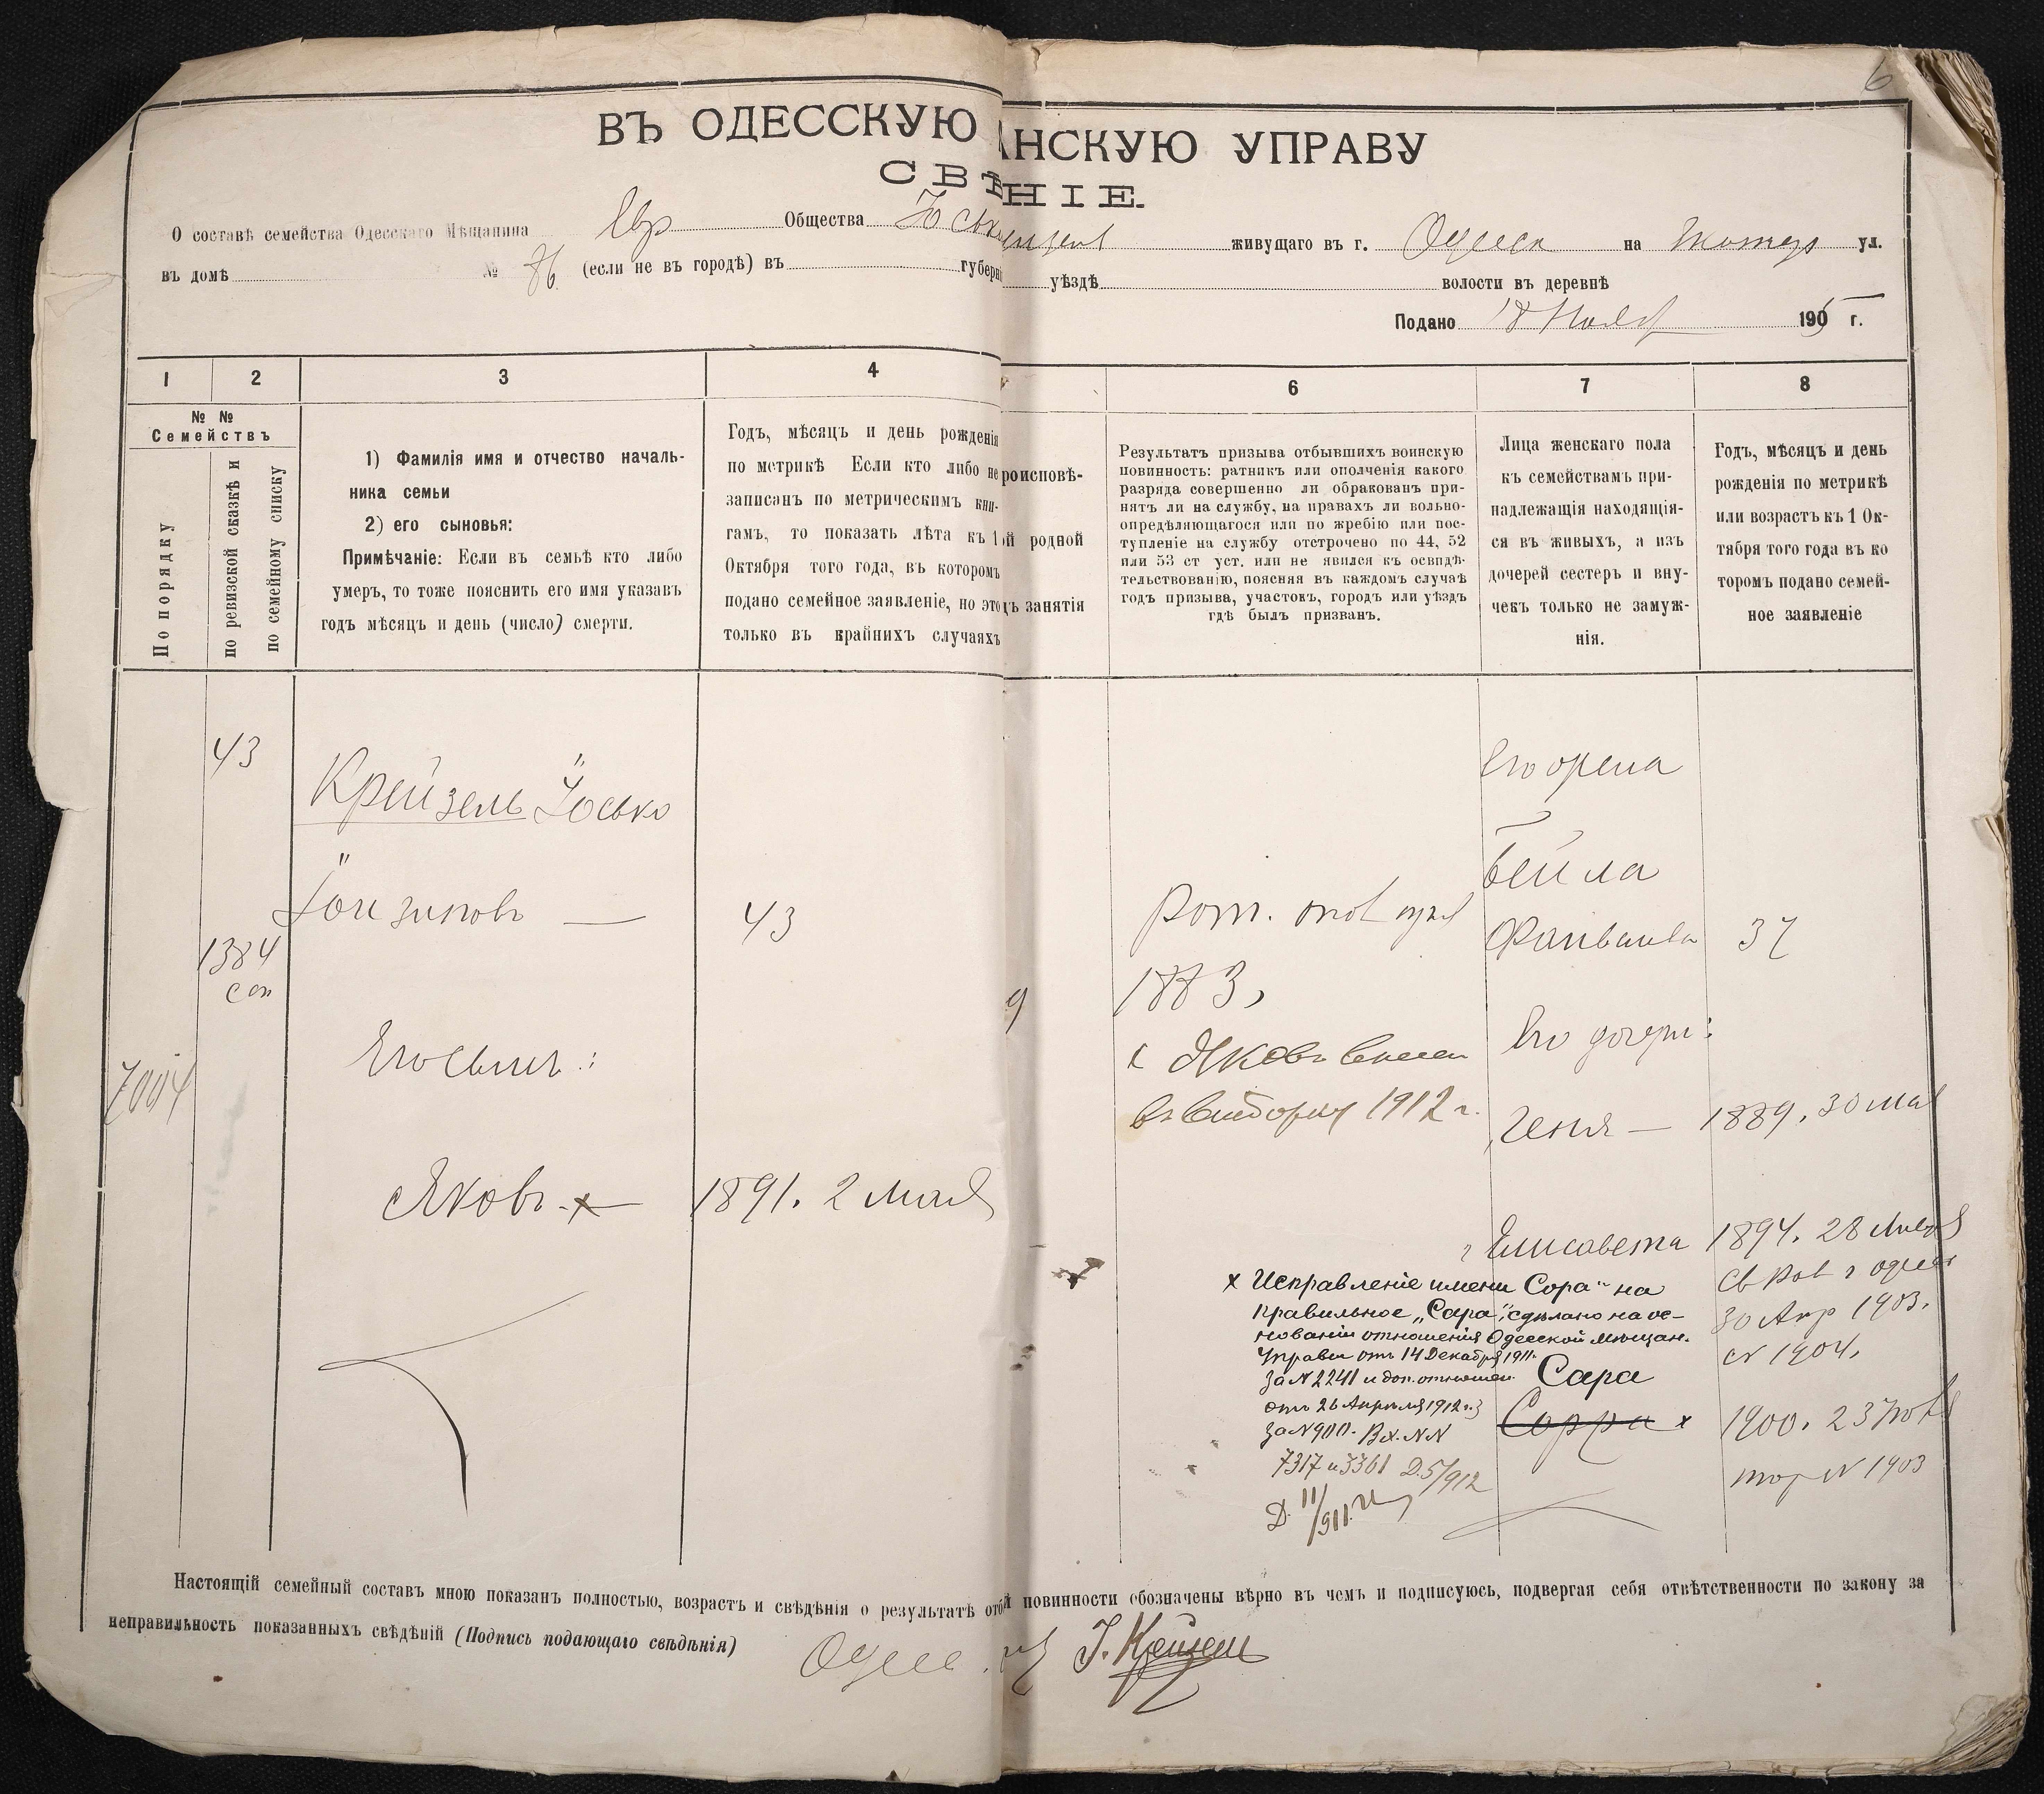 6
ВЪ ОДЕССКУЮ АНСКУЮ УПРАВУ
СВѢ НІЕ.
О составѣ семейства Одесскаго Мѣщанина Евр Общества Юськ живущаго въ г. Одесса на ул.
въ домѣ № 76 (если не въ городѣ) въ губерн уѣздѣ волости въ деревнѣ
Подано 18 Нояб 1905 г.
1 2 3 4 6 7 8
№ №
Семействъ
По порядку
по ревизской сказкѣ и
по семейному списку
1) Фамилія имя и отчество началь-
ника семьи
2) его сыновья:
Примѣчаніе: Если въ семьѣ кто либо
умеръ, то тоже пояснить его имя указавъ
годъ мѣсяцъ и день (число) смерти.
Годъ, мѣсяцъ и день рожденія
по метрикѣ Если кто либо не
записанъ по метрическимъ кни-
гамъ, то показать лѣта къ 1
Октября того года, въ которомъ
подано семейное заявленіе, но это
только въ крайнихъ случаяхъ
роисповѣ-
ой родной
ъ занятія
Результатъ призыва отбывшихъ воинскую
повинность: ратникъ или ополченія какого
разряда совершенно ли обракованъ при-
нятъ ли на службу, на правахъ ли вольно-
опредѣляющагося или по жребію или пос-
тупленіе на службу отстрочено по 44, 52
или 53 ст уст. или не явился къ освидѣ-
тельствованію, поясняя въ каждомъ случаѣ
годъ призыва, участокъ, городъ или уѣздъ
гдѣ былъ призванъ.
Лица женскаго пола
къ семействамъ при-
надлежащія находящія-
ся въ живыхъ, а изъ
дочерей сестеръ и вну-
чекъ только не замуж-
нія.
Годъ, мѣсяцъ и день
рожденія по метрикѣ
или возрастъ къ 1 Ок-
тября того года въ ко
торомъ подано семей-
ное заявленіе
43
Крейзель Юсько
43
1384
7004
Его сынъ:
Яковъ x 1891. 2 Мая
1883,
x Яковъ внесен
1912 г.
Его жена
Бейла
37
Его дочери:
Геня — 1889. 30 мая
Елисавета 1894. 28
30 Апр 1903.
N 1904.
x Исправленіе имени Сора" на
правильное „Сара", сдѣлано на ос-
нованіи отношенія Одесской Мѣщан.
Управы отъ 14 Декабря 1911г.
за N 2241 и доп. отношен.
отъ 26 Апрѣля 1912 г.
за N 900. Вх. NN
7317 и 3361 Д. 5/912
Д. 11/911
Сара
Сорра x 1900. 23
N 1903
Настоящій семейный составъ мною показанъ полностью, возрастъ и свѣдѣнія о результатѣ отб й повинности обозначены вѣрно въ чемъ и подписуюсь, подвергая себя отвѣтственности по закону за
неправильность показанныхъ свѣдѣній (Подпись подающаго свѣдѣнія)
І. Крейзель